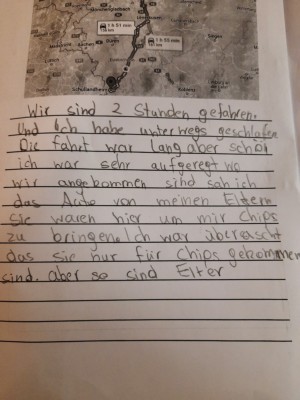 Mönchengladbach
1 h 51 min
1 h 53 min
Düren
Schullandheim
Koblenz
Wir sind 2 Stunden gefahren.
Und Ich habe unterwegs geschlafen
Die fahrt war lang aber schön
ich war sehr aufgeregt wo
wir angekommen sind sah ich
das Auto von meinen Eltern
Sie waren hier um mir Chips
zu bringen. Ich war überrascht
das sie nur für Chips gekommen
sind. aber so sind Elter